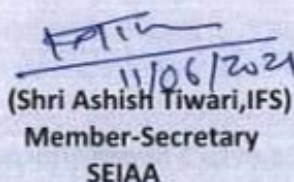 11/06/2021
(Shri Ashish Tiwari,IFS)
Member-Secretary
SEIAA